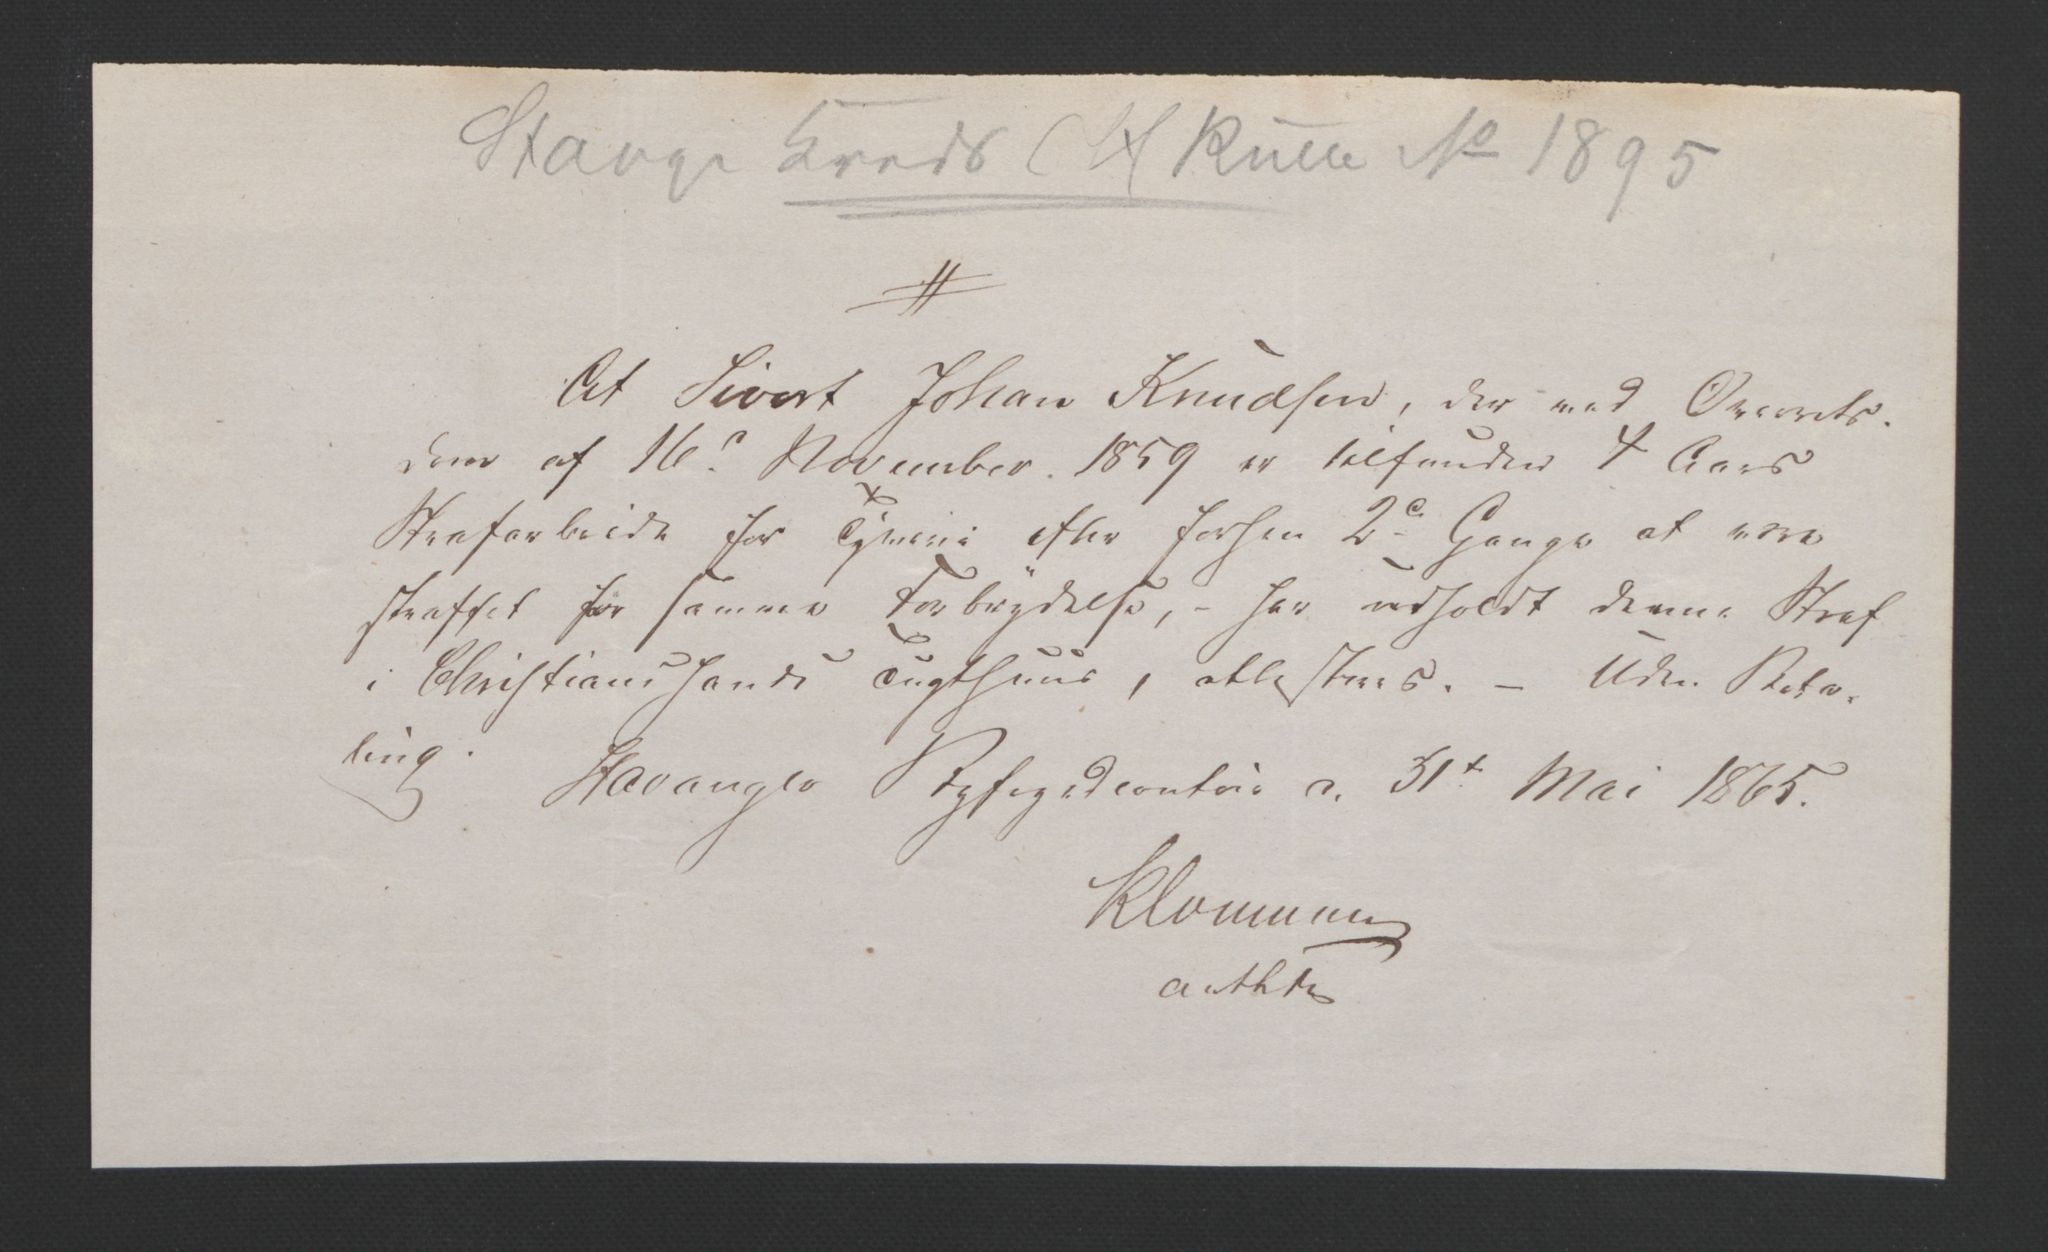 Stavgr Kreds Rulle No 1895
At Sivert Johan Knudsen, der ved Overrets-
dom af 16de November 1859 er tilfunden 4 Aars
Strafarbeide for Tyveri efter forhen 2de Gange at være
straffet for samme Forbrydelse, - har udholdt denne Straf
i Christianssands Tugthuus, attesteres. - Uden Beta-
ling.
Stavanger Byfogedcontoir d. 31t Mai 1865.